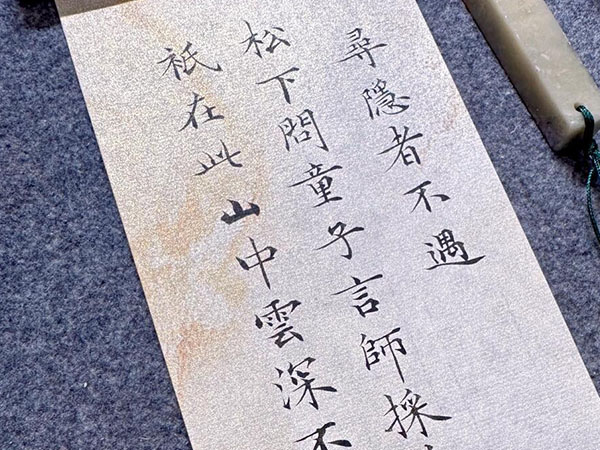 尋隱者不遇
松下問童子言師採
祇在此山中雲深不